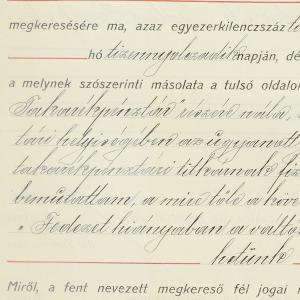 megkeresésére ma, azaz egyezerkilenczszáz ti
hó tizennyolczadik napján, dé
a melynek szószerinti másolata a tulsó oldalon
Takarékpénztár" részére nála, s
tári helyiségében az ugyanott
takarékpénztári titkárnak fiz
bemutattam, a mire tőle a köve
"Fedezet hiányában a váltó
hetünk
Miről, a fent nevezett megkereső fél jogai m